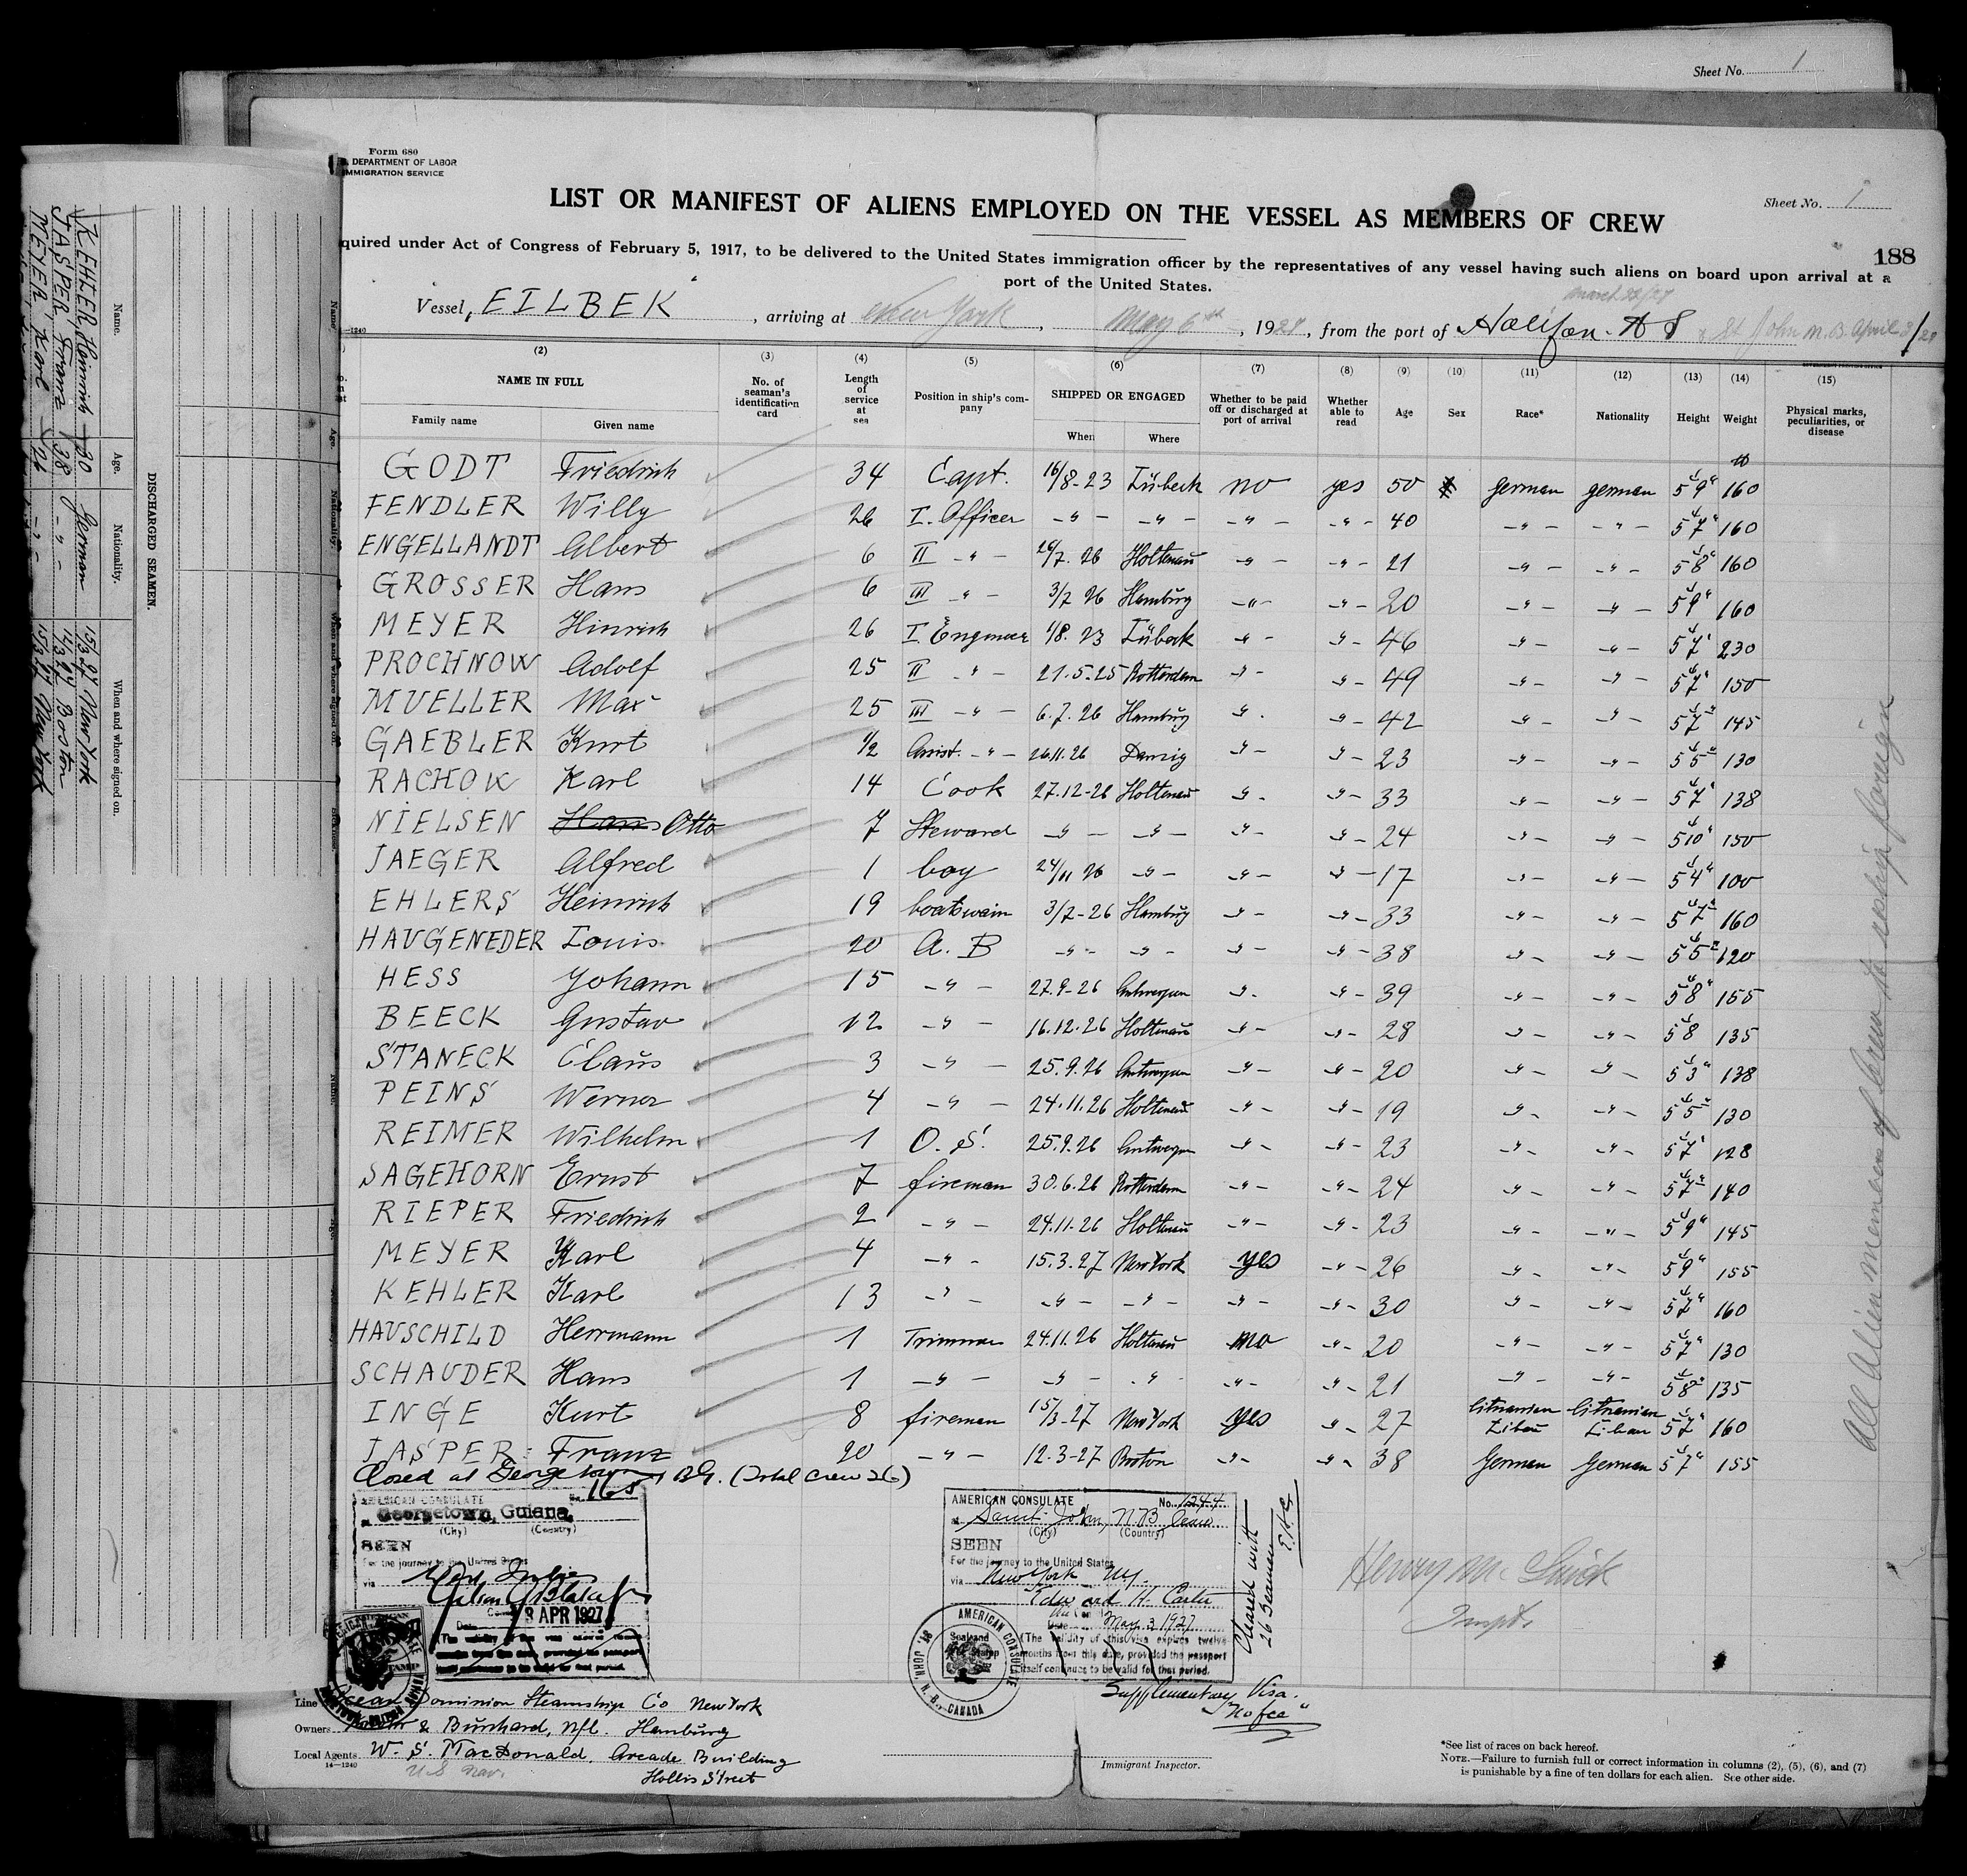 Sheet No. 1
Form 680
DEPARTMENT OF LABOR
IMMIGRATION SERVICE
LIST OR MANIFEST OF ALIENS EMPLOYED ON THE VESSEL AS MEMBERS OF CREW
Sheet No. 1
188
quired under Act of Congress of February 5, 1917, to be delivered to the United States immigration officer by the representatives of any vessel having such aliens on board upon arrival at a
port of the United States.
March 22/27
Vessel, EILBEK, arriving at New York, May 6th, 1927, from the port of Halifax. N S & St John N.B. April
(2) (3) (4) (5) (6) (7) (8) (9) (10) (11) (12) (13) (14) (15)
NAME IN FULL No. of seaman's identification card Length of service at sea Position in ship's company SHIPPED OR ENGAGED Whether to be paid off or discharged at port of arrival Whether able to read Age Sex Race* Nationality Height Weight Physical marks, peculiarities, or disease
Family name Given name When Where
GODT Friedrich 34 Capt. 16/8-23 Lübeck no yes 50 german german 5 9" 160
FENDLER Willy 26 I. Officer -"- -"- -"- -"- 40 -"- -"- 5 7" 160
ENGELLANDT Albert 6 II -"- 26/7. 26 Holtenau -"- -"- 21 -"- -"- 5 8" 160
GROSSER Hans 6 III -"- 3/7 26 Hamburg -"- -"- 20 -"- -"- 5 9" 160
MEYER Hinrich 26 I. Engineer 1/8. 23 Lübeck -"- -"- 46 -"- -"- 5 7" 230
PROCHNOW Adolf 25 II -"- 21.5.25 Rotterdam -"- -"- 49 -"- -"- 5 7" 150
MUELLER Max 25 III -"- 6.7.26 Hamburg -"- -"- 42 -"- -"- 5 7" 145
GAEBLER Kurt 1/2 Assist. -"- 26.11.26 Danzig -"- -"- 23 -"- -"- 5 5" 130
RACHOW Karl 14 Cook 27.12-26 Holtenau -"- -"- 33 -"- -"- 5 7" 138
NIELSEN Hans Otto 7 Steward -"- -"- -"- -"- 24 -"- -"- 5 10" 150
JAEGER Alfred 1 boy 24/11 26 -"- -"- -"- 17 -"- -"- 5 4" 100
EHLERS Heinrich 19 boatswain 3/7-26 Hamburg -"- -"- 33 -"- -"- 5 7" 160
HAUGENEDER Louis 20 A. B -"- -"- -"- -"- 38 -"- -"- 5 5" 120
HESS Johann 15 -"- 27.9-26 Antwerpen -"- -"- 39 -"- -"- 5 8" 155
BEECK Gustav 12 -"- 16.12.26 Holtenau -"- -"- 28 -"- -"- 5 8 135
STANECK Claus 3 -"- 25.9.26 Antwerpen -"- -"- 20 -"- -"- 5 3" 138
PEINS Werner 4 -"- 24.11.26 Holtenau -"- -"- 19 -"- -"- 5 5" 130
REIMER Wilhelm 1 O. S. 25.9.26 Antwerpen -"- -"- 23 -"- -"- 5 7" 128
SAGEHORN Ernst 7 fireman 30.6.26 Rotterdam -"- -"- 24 -"- -"- 5 7" 140
RIEPER Friedrich 2 -"- 24.11-26 Holtenau -"- -"- 23 -"- -"- 5 9" 145
MEYER Karl 4 -"- 15.3.27 New York yes -"- 26 -"- -"- 5 9" 155
KEHLER Karl 13 -"- -"- -"- -"- -"- 30 -"- -"- 5 7" 160
HAUSCHILD Herrmann 1 Trimmer 24.11.26 Holtenau no -"- 20 -"- -"- 5 7" 130
SCHAUDER Hans 1 -"- -"- -"- -"- -"- 21 -"- -"- 5 8" 135
INGE Kurt 8 fireman 15/3-27 New York yes -"- 27 Lithuanian Libau Lithuanian Libau 5 7" 160
JASPER Franz 20 -"- 12.3-27 Boston -"- -"- 38 German German 5 7" 155
Closed at Georgetown BG. (Total Crew 26)
AMERICAN CONSULATE No. 168
at Georgetown, Guiana
(City) (Country)
SEEN
For the journey to the United States
via
8 APR 1927
AMERICAN CONSULATE No. 1244
at Saint John, N.B.
(City) (Country)
SEEN
For the journey to the United States
via New York NY.
Edward H. Carter
Date May 3 1927
(The validity of this visa expires twelve
months from this date, provided the passport
itself continues to be valid for that period.
AMERICAN CONSULATE ST. JOHN, N. B., CANADA
Cleared with
26 Seamen
Supplementary Visa.
"No fee"
All alien members of crew to reship foreign
Line Ocean Dominion Steamship Co New York
Owners & Burchard, Hamburg
Local Agents W. S. MacDonald. Arcade Building
14—1240
Hollis Street
Immigrant Inspector.
*See list of races on back hereof.
NOTE.—Failure to furnish full or correct information in columns (2), (5), (6), and (7)
is punishable by a fine of ten dollars for each alien. See other side.
DISCHARGED SEAMEN.
Name. Age. Nationality. When and where signed on.
KEHLER, Heinrich 30 German 15/3.27 New York
JASPER, Franz 38 -"- Boston
MEYER, Karl 26 -"- 15/3.27 New York